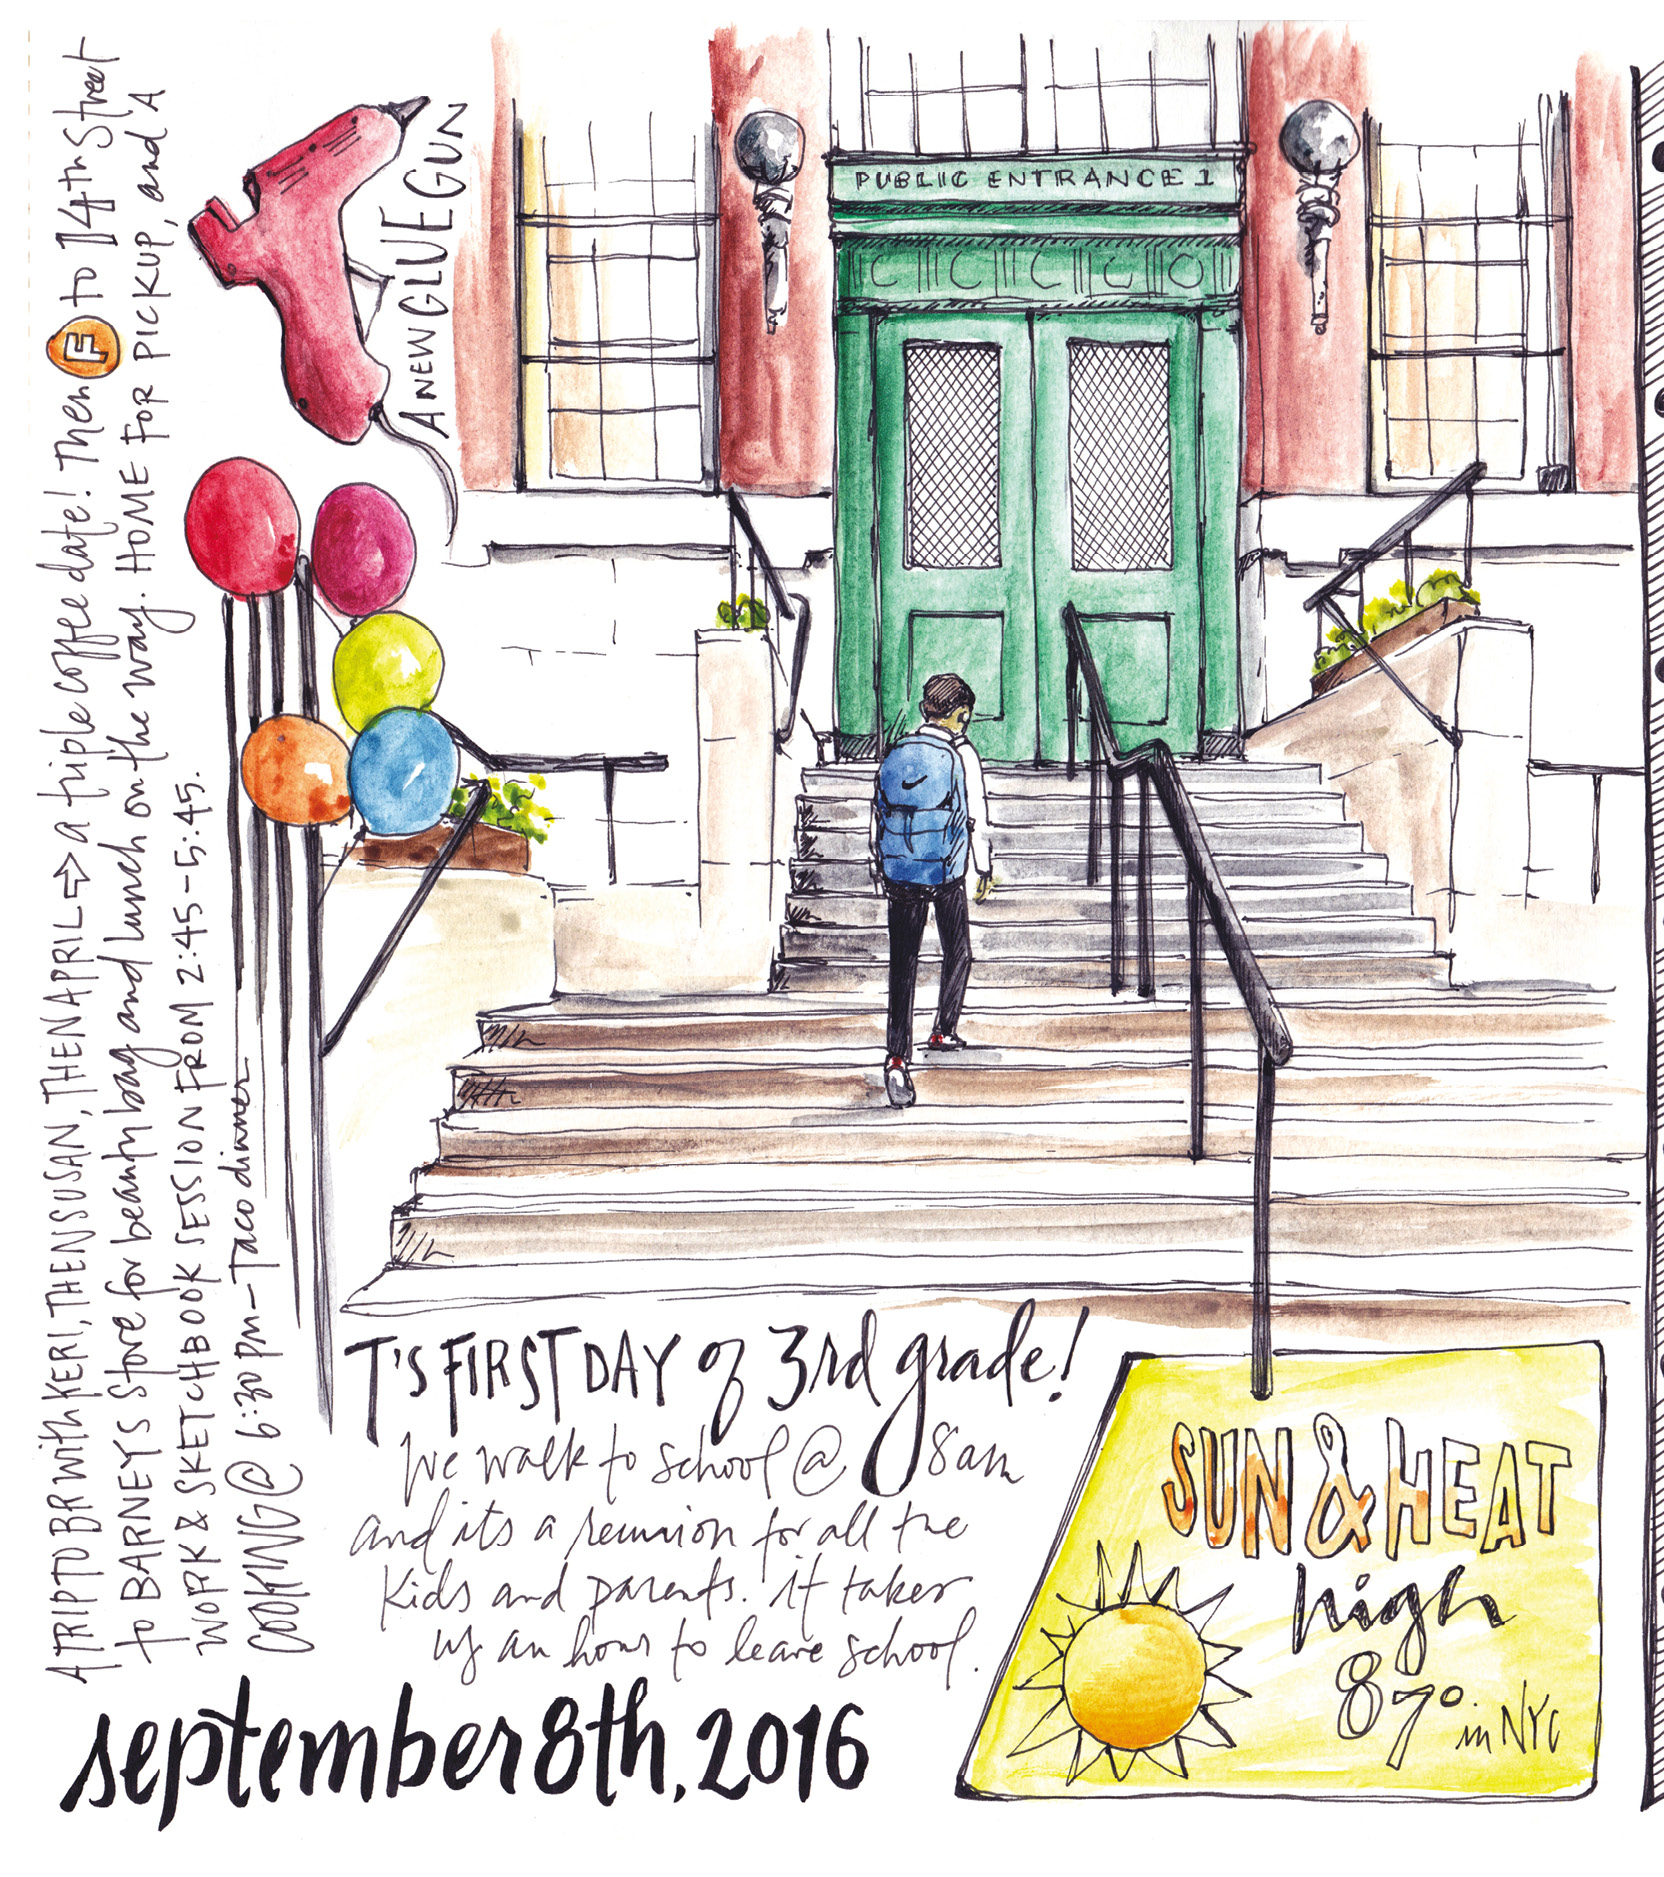 A TRIP TO BR with KERI, THEN SUSAN, THEN APRIL → a triple coffee date! Then F to 14th Street
to BARNEYS Store for beauty bag and lunch on the way. HOME FOR PICKUP, and A
WORK & SKETCHBOOK SESSION FROM 2:45-5:45.
COOKING @ 6:30 PM - Taco dinner
A NEW GLUE GUN
PUBLIC ENTRANCE 1
T'S FIRST DAY of 3rd grade!
We walk to school @ 8am
and its a reunion for all the
kids and parents. it takes
us an hour to leave school.
september 8th, 2016
SUN & HEAT
high
87°
in NYC